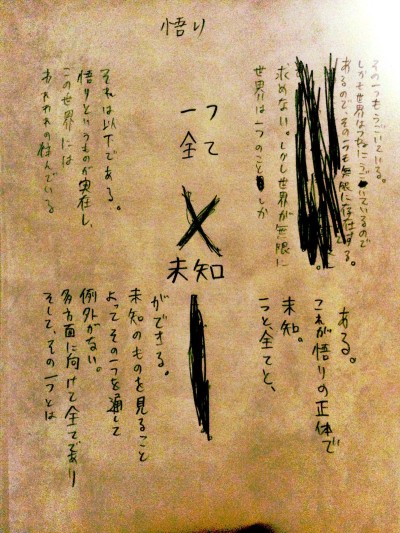 悟り
われわれの住んでいる
この世界には
悟りというものが実在し、
それは以下である。
一つ
全て
×
未知
そして、その一つとは
多方面に向けて全てであり
例外がない。
よってその一つを通して
未知のものを見ること
ができる。
世界は一つのことしか
求めない。しかし世界が無限に
あるので、その一つも無限に存在する。
しかも世界はつねにうごいているので
その一つもうごいている。
一つと、全てと、
未知。
これが悟りの正体で
ある。